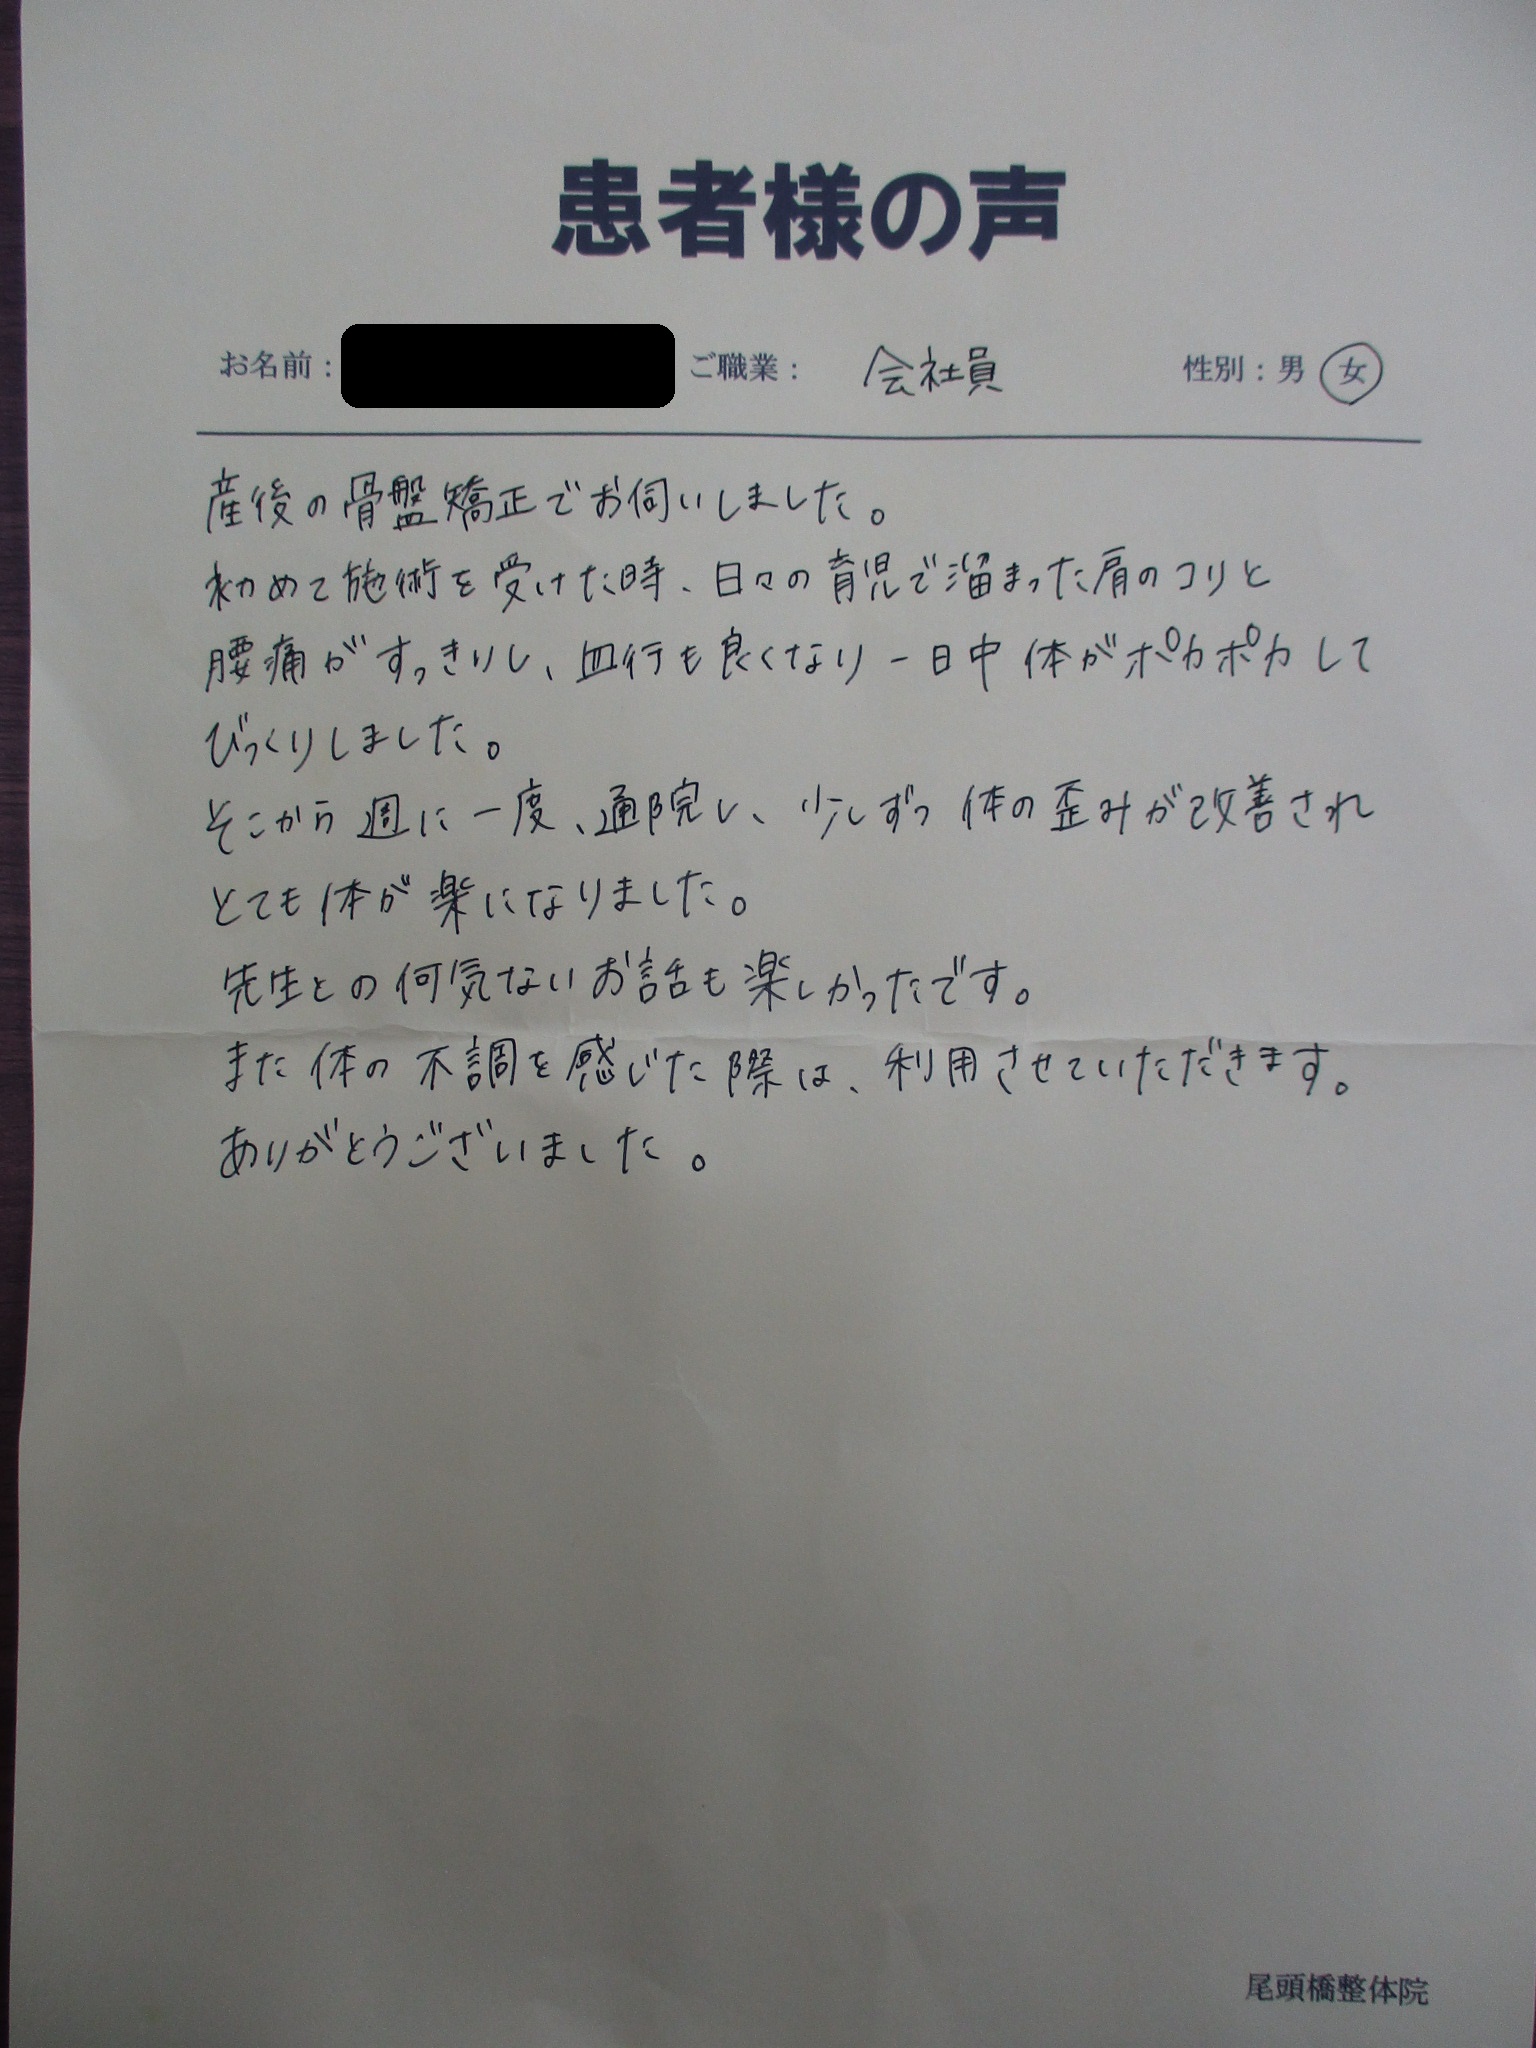 患者様の声
お名前： ご職業： 会社員 性別：男 女
産後の骨盤矯正でお伺いしました。
初めて施術を受けた時、日々の育児で溜まった肩のコリと
腰痛がすっきりし、血行も良くなり一日中体がポカポカして
びっくりしました。
そこから週に一度、通院し、少しずつ体の歪みが改善され
とても体が楽になりました。
先生との何気ないお話も楽しかったです。
また体の不調を感じた際は、利用させていただきます。
ありがとうございました。
尾頭橋整体院